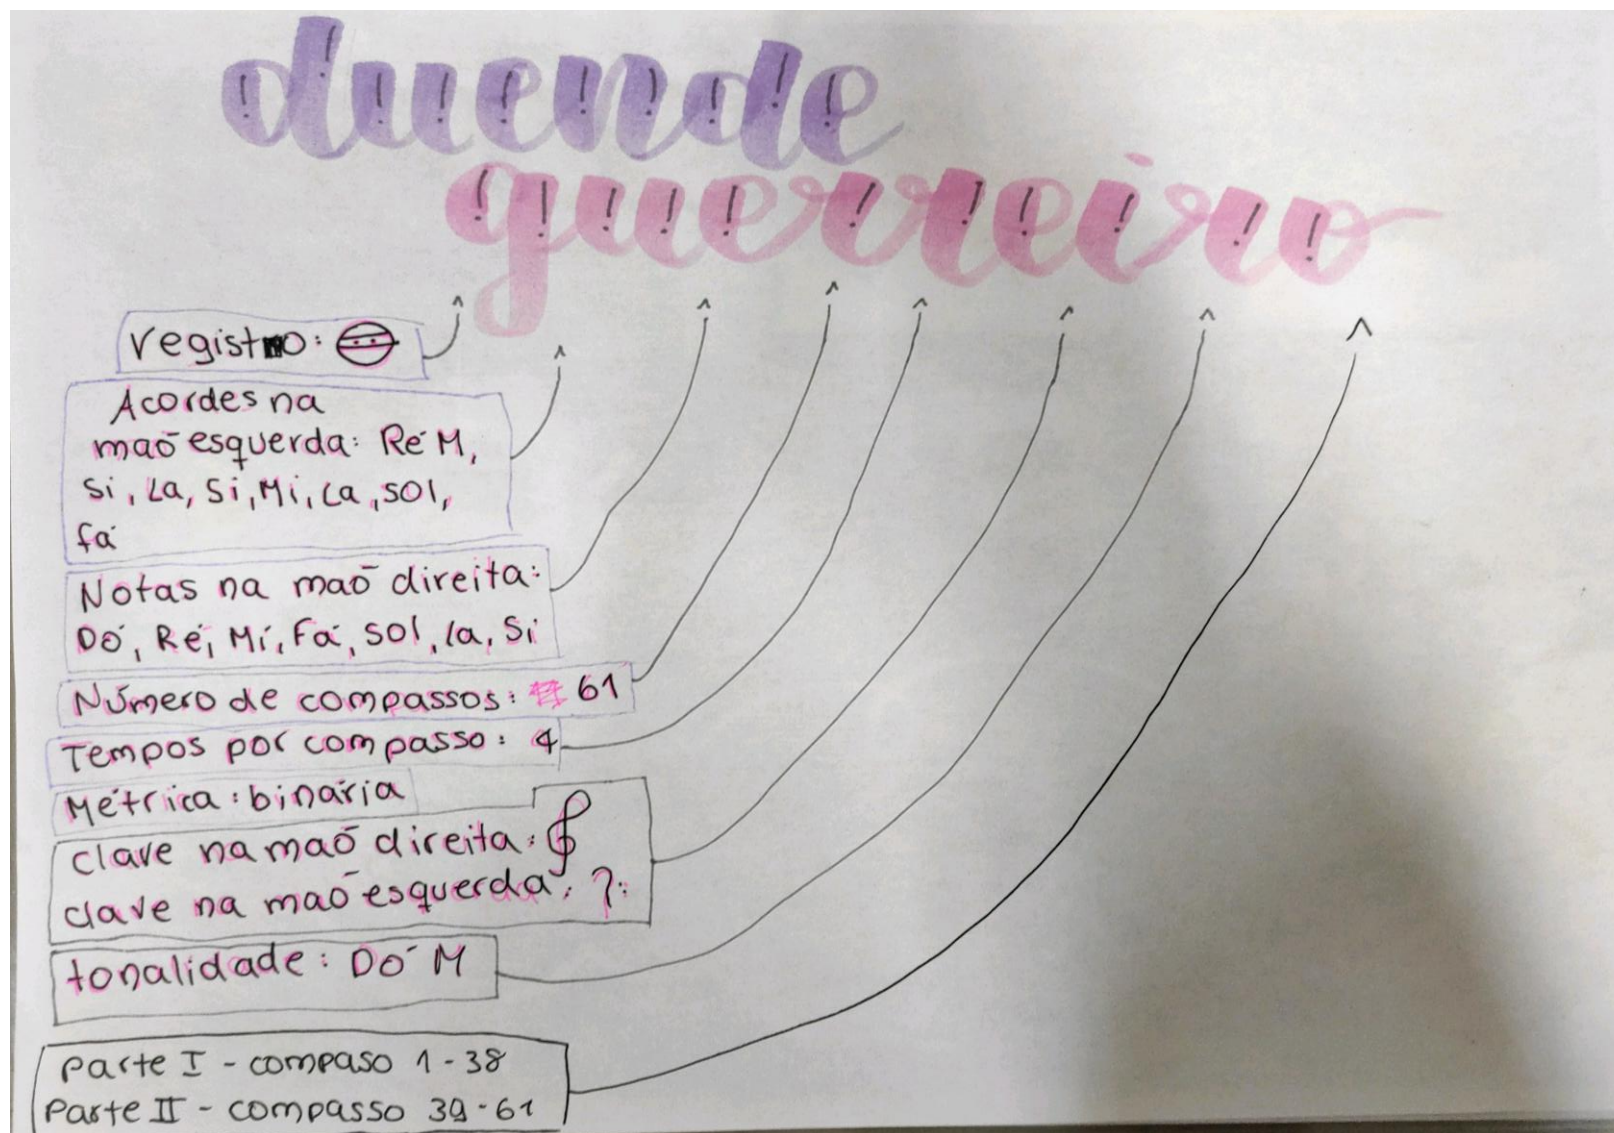 duende
guerreiro
registro:
Acordes na
maõ esquerda: Ré M,
Si, La, Si, Mi, La, SOl,
fá
Notas na maõ direita:
Dó, Ré, Mi, Fá, SOl, la, Si
Número de compassos: 61
Tempos por compasso: 4
Métrica: binária
clave na maõ direita:
clave na maõ esquerda:
tonalidade: DÓ M
parte I - compaso 1-38
Parte II - compasso 39-61